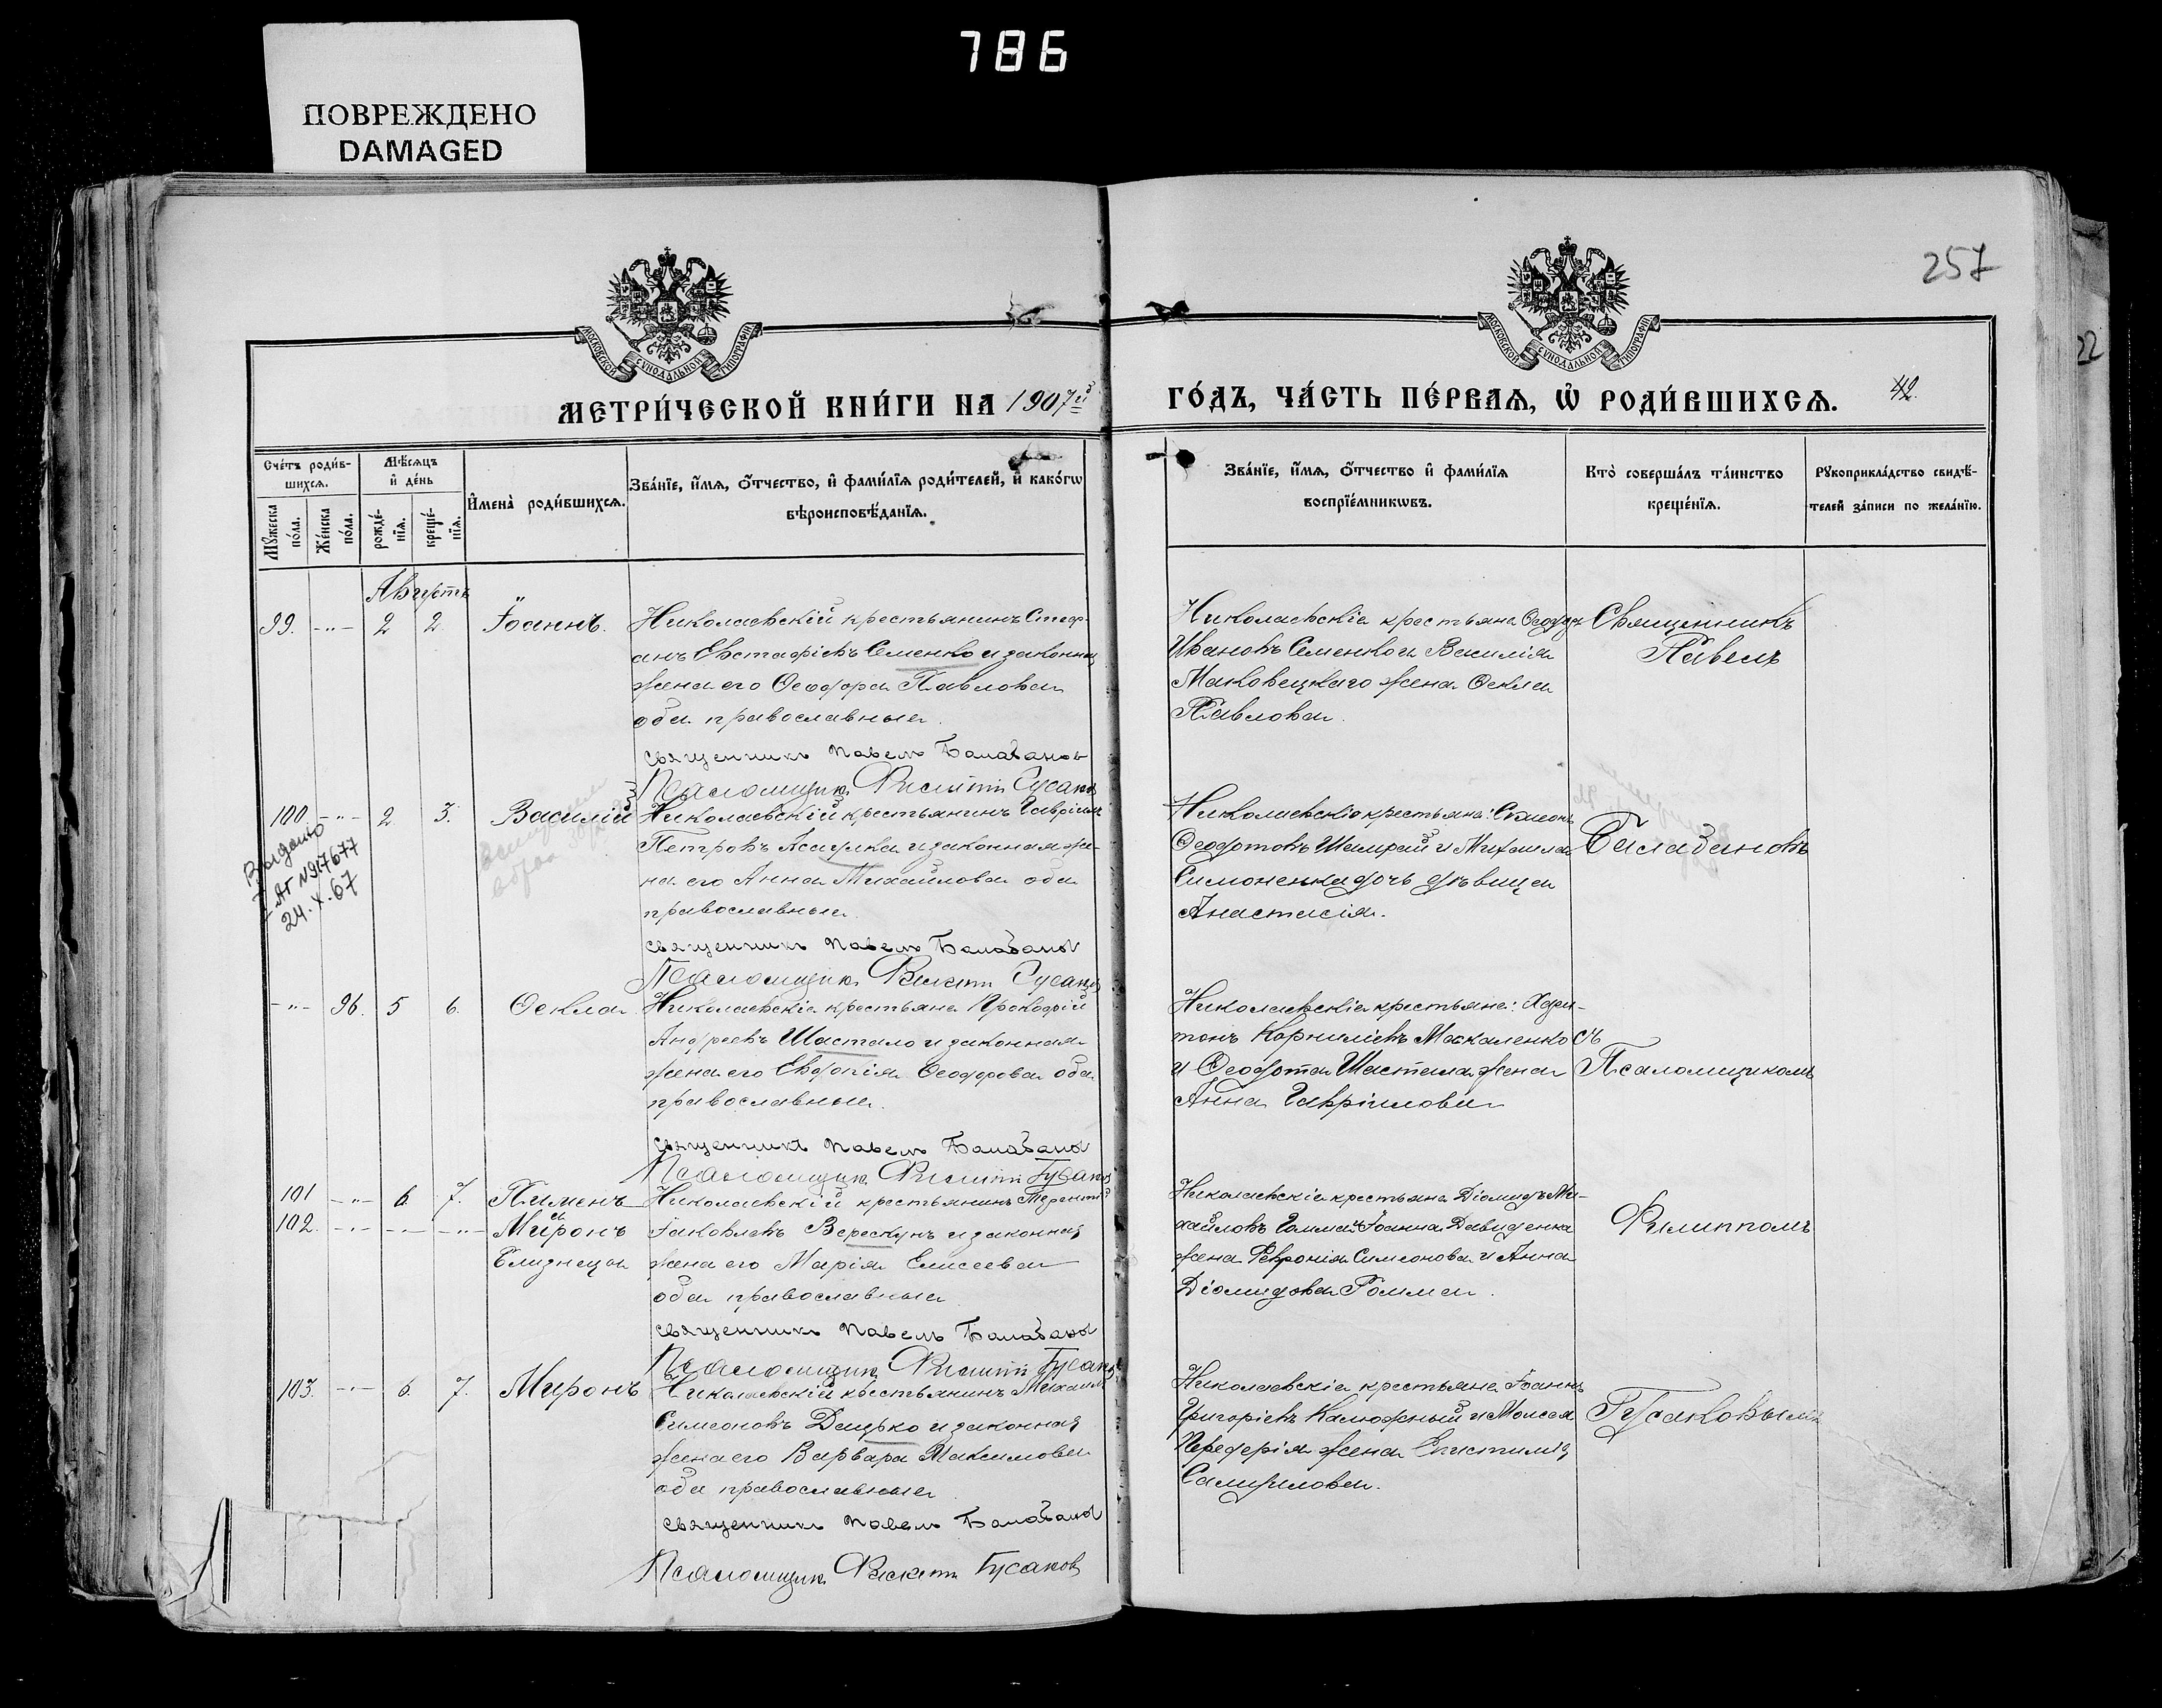 786
ПОВРЕЖДЕНО
DAMAGED
257
22
МОСКОВСКОЙ СѴНОДАЛЬНОЙ ТИПОГРАФІИ
МОСКОВСКОЙ СѴНОДАЛЬНОЙ ТИПОГРАФІИ
МЕТРИ́ЧЕСКОЙ КНИ́ГИ НА 1907й
ГО́ДЪ, ЧА́СТЬ ПЕ́РВАѦ, Ѡ҆ РОДИ́ВШИХСѦ. 42.
Сче́тъ роди́в-
шихсѧ.
Мꙋ́жеска по́ла.
Же́нска по́ла.
Мѣ́сѧцъ
и҆ де́нь
рожде́-
нїѧ.
креще́-
нїѧ.
И҆мена̀ роди́вшихсѧ.
Зва́нїе, и҆́мѧ, ѻ҆́тчество, и҆ фами́лїѧ роди́телей, и҆ како́гѡ
вѣроисповѣ́данїѧ.
Зва́нїе, и҆́мѧ, ѻ҆́тчество и҆ фами́лїѧ
воспрїе́мникѡвъ.
Кто̀ соверша́лъ та́инство
креще́нїѧ.
Рꙋкоприкла́дство свидѣ́-
телей за́писи по жела́нїю.
Августъ
99. -"- 2 2 Іоаннъ.
Николаевскій крестьянинъ Стеф-
анъ Евстафіевъ Семенко и законная
жена его Ѳеодора Павлова
оба православные.
священникъ Павелъ Балабановъ
Псаломщик Филипп Гусаков
Николаевскіе крестьяне Ѳеодоръ
Ивановъ Семенко и Василія
Маковецкаго жена Ѳекла
Павлова.
Священникъ
Павелъ
100 -"- 2 3. Василій
Выдано
I-АГ N 917677
24.X.67
Николаевскій крестьянинъ Гавріилъ
Петровъ и законная же-
на его Анна Михайлова оба
православные.
священникъ Павелъ Балабанов
Псаломщик Филипп Гусаков
Николаевскіе крестьяне: Симеонъ
Ѳеодотовъ Шамрай и Михаила
Симоненка дочь дѣвица
Анастасія.
Балабановъ
-"- 96. 5 6. Ѳекла
Николаевскіе крестьяне Прокофій
Андреевъ Шастало и законная
жена его Евдокія Ѳеодорова оба
православные.
священникъ Павелъ Балабанов
Псаломщик Филипп Гусаков
Николаевскіе крестьяне: Хари-
тонъ Корниліевъ Москаленко
и Ѳеодота Шастала жена
Анна Гавріилова
съ
Псаломщикомъ
101 -"- 6 7. Пименъ
102. -"- -"- -"- Миронъ
Близнецы
Николаевскій крестьянинъ Терентій
Іаковлевъ Верескунъ и законная
жена его Марія Елисеева
оба православные
священникъ Павелъ Балабанов
Псаломщик Филипп Гусаков
Николаевскіе крестьяне Діомидъ Ми-
хайловъ Іоанна Давиденка
жена Февронія Симеонова и Анна
Діомидова
Филиппомъ
103. -"- 6. 7. Миронъ
Николаевскій крестьянинъ Михаилъ
Симеоновъ Децько и законная
жена его Варвара Максимова
оба православные
священникъ Павелъ Балабанов
Псаломщик Филипп Гусаков
Николаевскіе крестьяне Іоаннъ
Григоріевъ Калюжный и Моисея
жена Епистимія
Самуилова.
Гусаковымъ